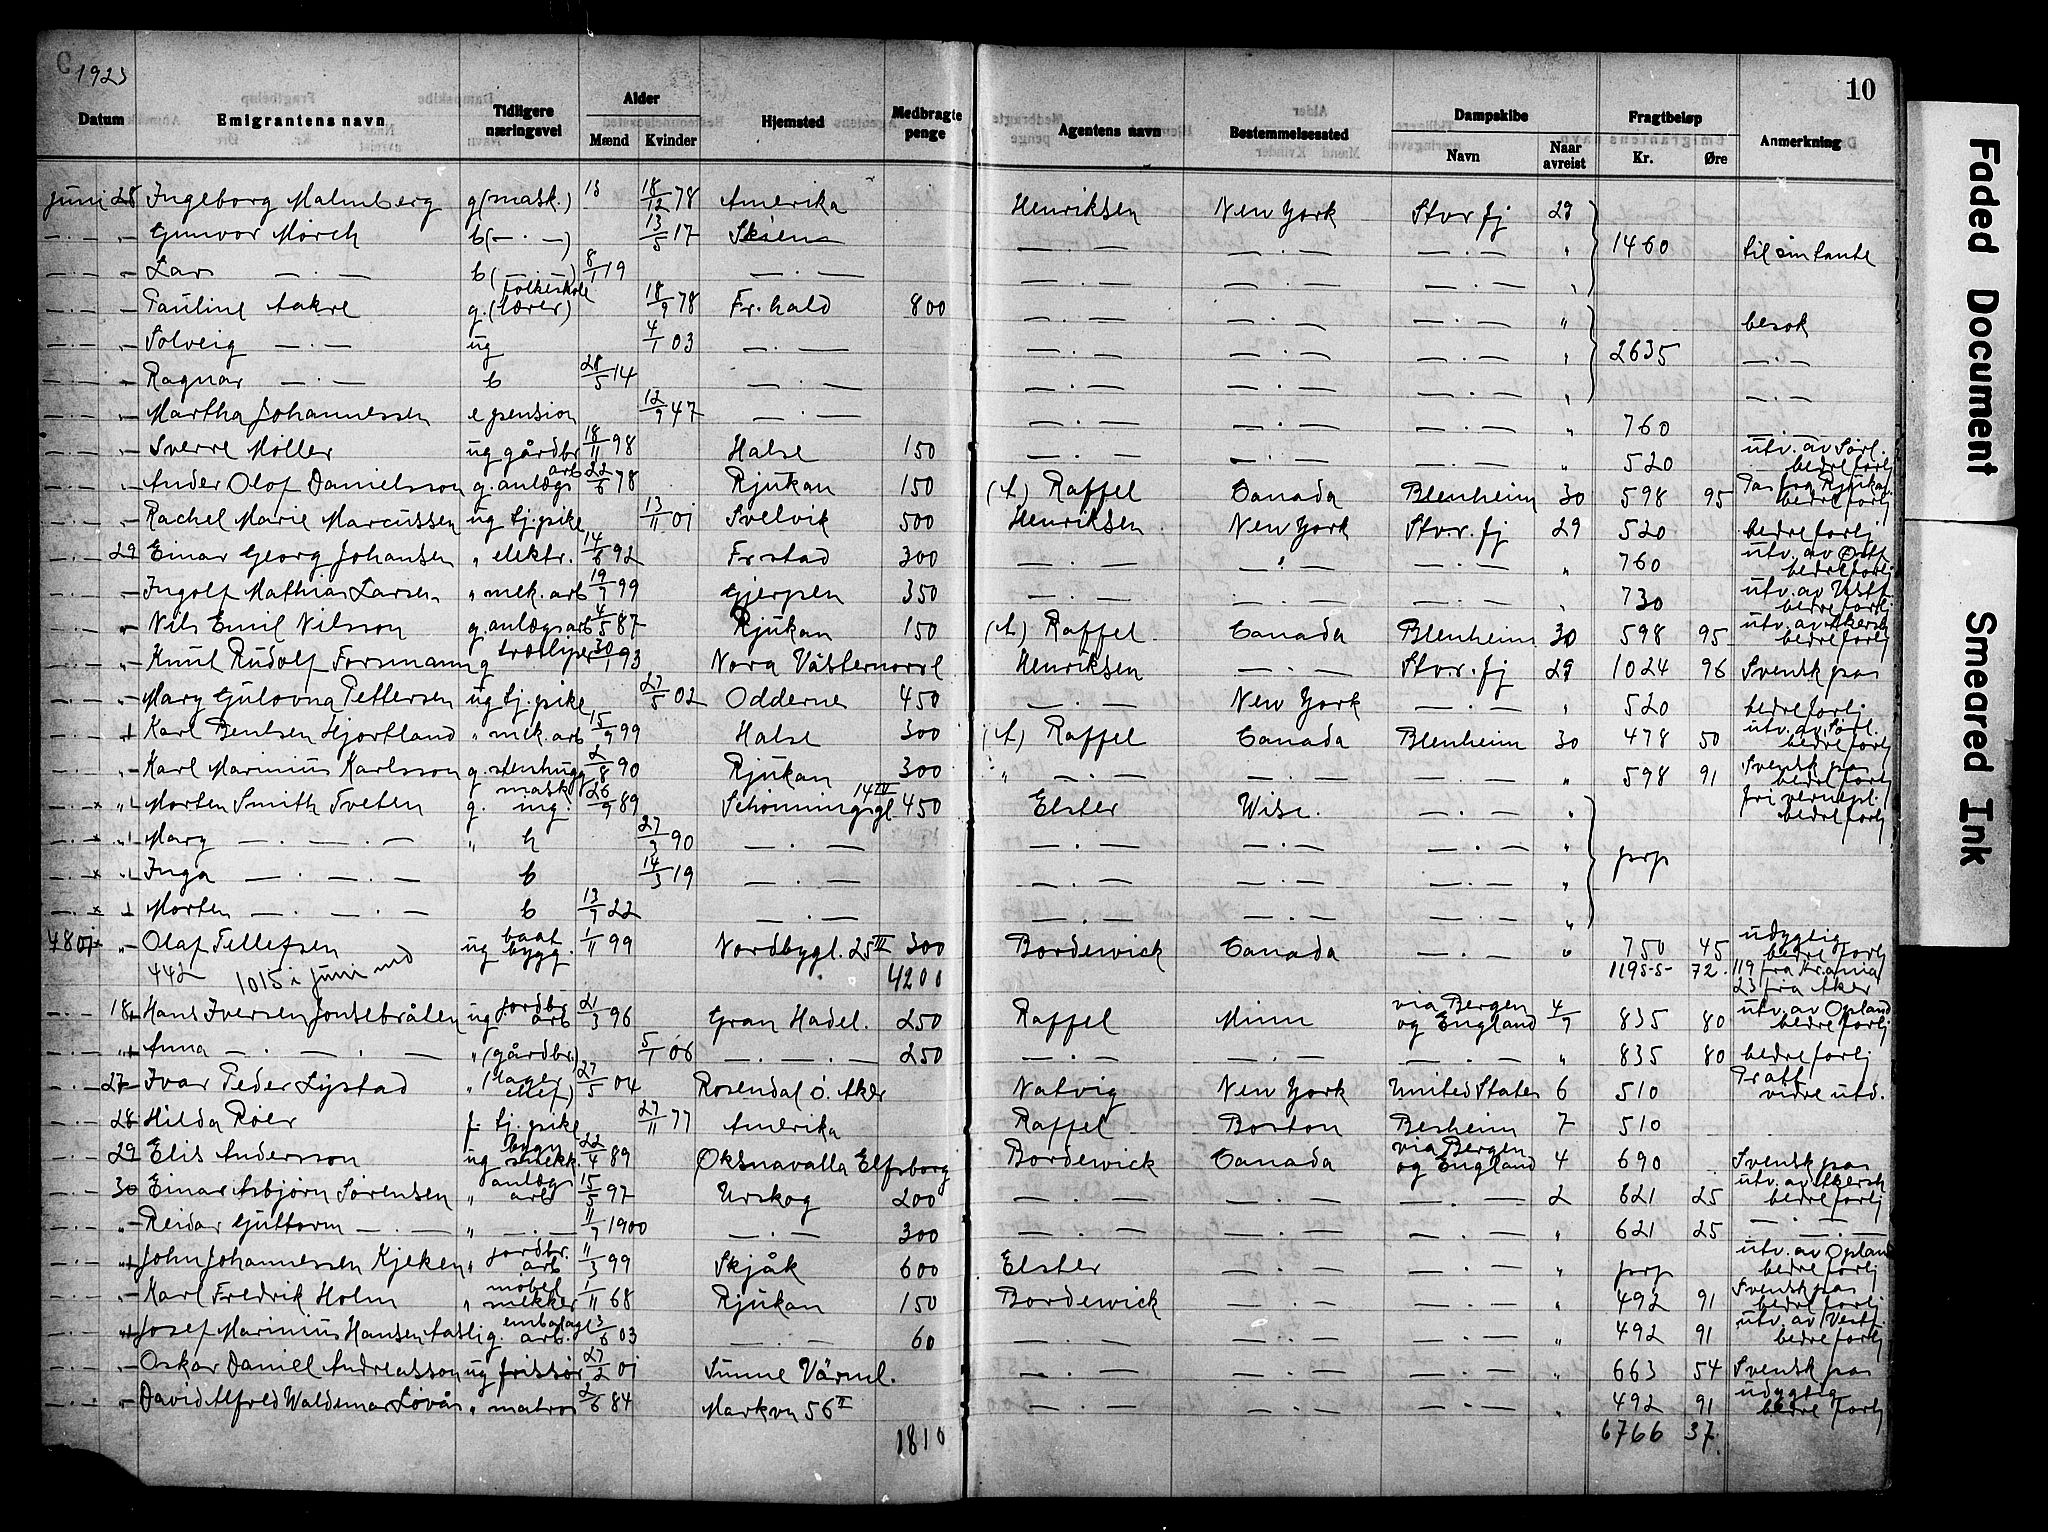 C 1923
10
Datum | Emigrantens navn | Tidligere næringsvei | Alder Mænd | Kvinder | Hjemsted | Medbragte penge | Agentens navn | Bestemmelsessted | Dampskibe Navn | Naar avreist | Fragtbeløp Kr. | Øre | Anmerkning
Juni 28 Ingeborg Malmberg g (mask.) 18/12 78 Amerika Henriksen New York Stvr.fj 29
— " Gunvor Mørch b (— · —) 13/5 17 Skien — · — — · — — · — " 1460 til sin tante
— " Lars — · — b ( — · — ) 8/1 19 — · — — · — — · — — · — "
— " Pauline Aakre g. (folkeskole lærer) 18/9 78 Fr.hald 800 — · — — · — — · — " besøk
— " Solveig — · — ug 4/1 03 — · — — · — — · — — · — " 2635 — · —
— " Ragnar — · — b 28/5 14 — · — — · — — · — — · — " — · —
— " Martha Johannessen e pension 12/9 47 — · — — · — — · — — · — " 760 — · —
— " Sverre Møller ug gårdbr. 18/11 98 Halse 150 — · — — · — — · — " 520 utv. av Sørl. bedre forlj
— " Ander Olof Danielsson g. anlægs arb 22/6 78 Rjukan 150 (A) Raffel Canada Blenheim 30 598 95 Pas fra Rjukan bedre forlj
— " Rachel Marie Marcussen ug tj.pike 13/11 01 Svelvik 500 Henriksen New York Stv.r.fj 29 520 bedre forlj
— 29 Einar Georg Johansen " elektr. 14/6 92 Fr.stad 300 — · — " — · — " 760 utv. av Østf. bedre forlj
— " Ingolf Mathias Larsen " mek. arb 19/7 99 Gjerpen 350 — · — — · — — · — " 730 utv. av Vestf. bedre forlj
— " Nils Emil Nilsson g. anlægsarb 4/5 87 Rjukan 150 (A) Raffel Canada Blenheim 30 598 95 utv. av Akersh bedre forlj
— " Knut Rudolf Forsmann g træsliper 30/1 93 Nora Västernorrl Henriksen — · — Stv.r.fj 29 1024 96 Svensk pas
— " Mary Gulovna Pettersen ug tj.pike 27/5 02 Odderne 450 — · — New York — · — " 520 bedre forlj
— + Karl Bentsen Hjortland " mek. arb 15/9 99 Halse 300 (A) Raffel Canada Blenheim 30 478 50 utv. av Sørl. bedre forlj
— " Karl Marinius Karlsson g. stenhugg 2/8 90 Rjukan 300 " — · — — · — — · — " 598 91 Svensk pas bedre forlj
— × " Morten Smith Tveten g. mask ing. 26/9 89 Schønningsgl. 14 IV 450 Elster Wisc. — · — " fri vernepl. bedre forlj
— × " Mary — · — · — " h 27/3 90 — · — — · — — · — — · — " prp
— × " Inga — · — · — b 14/3 19 — · — — · — — · — — · — "
— × + Morten — · — · — b 13/7 22 — · — — · — — · — — · — "
4801 " Olaf Tellefsen ug baat bygg. 1/11 99 Nordbygl. 25 III 300 Bordewick Canada — · — " 750 45 udygtig bedre forlj
442 1015 i juni md 4200 11955 72 119 fra Kr.ania 23 fra Aker
— 18 Hans Iversen Jonsebråten ug jordbr. arb 21/3 96 Gran Hadel. 250 Raffel Minn via Bergen og England 4/7 835 80 utv. av Opland bedre forlj
— " Anna — · — · — " (gårdbr.) 5/1 06 — · — · — 250 — · — — · — — · — " 835 80 bedre forlj
— 27 Ivar Peder Lystad " (lager chef) 27/5 04 Rosendal Ø. Aker Natvig New York United States 6 510 Pratt vidre utd.
— 28 Hilda Røer f. tj.pike 27/11 77 Amerika Raffel Boston Besheim 7 510
— 29 Elis Andersson ug bygn snekk. 22/4 89 Oksnavalla Elfsborg Bordewick Canada via Bergen og England 4 690 Svensk pas
— 30 Einar Asbjørn Sørensen " anlægs arb 15/5 97 Urskog 200 — · — — · — — · — 2 621 25 utv. av Akersh bedre forlj
— " Reidar Guttorm — · — " — · — 11/7 1900 — · — 300 — · — — · — — · — " 621 25 — · —
— " John Johannessen Kjeken " jordbr. arb 11/3 99 Skjåk 600 Elster — · — — · — " prp utv. av Opland bedre forlj
— " Karl Fredrik Holm " møbel snekker 1/11 68 Rjukan 150 Bordewick — · — — · — " 492 91 Svensk pas bedre forlj
— " Josef Marinius Hansen Aasli g. embalage arb. 3/6 03 — · — 60 — · — — · — — · — " 492 91 utv. av Vestf. bedre forlj
— " Oskar Daniel Andreasson ug frissør 27/2 01 Sunne Värml. — · — — · — — · — " 663 54 Svensk pas
— " David Alfred Waldemar Løvås " matros 2/6 84 Markvn 56 II — · — — · — — · — " 492 91 udygtig bedre forlj
1810 6766 37
Faded Document
Smeared Ink